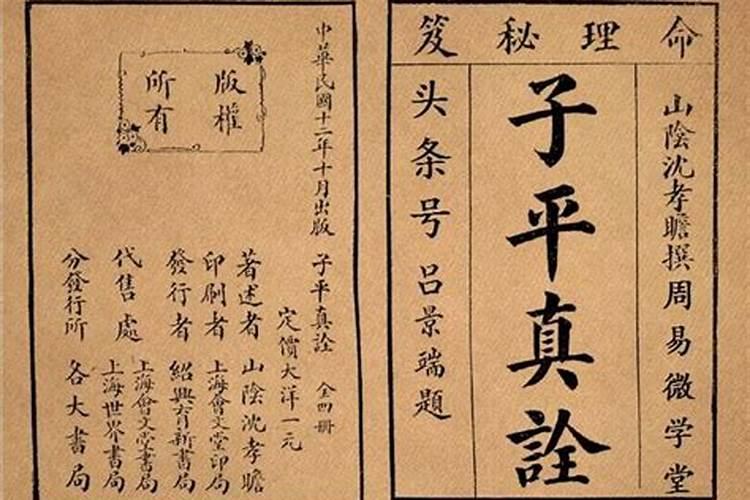 命理秘笈
山陰沈孝瞻撰周易微学堂
子平真詮
头条号 吕景端題
中華民國十二年十月出版 子平真詮 全四冊
定價大洋一元
版權
所有
著述者 山陰沈孝瞻
印刷者 上海會文堂印局
發行者 紹興育新書局
代售處 上海會文堂書局
上海世界書局
分發行所 各大書局